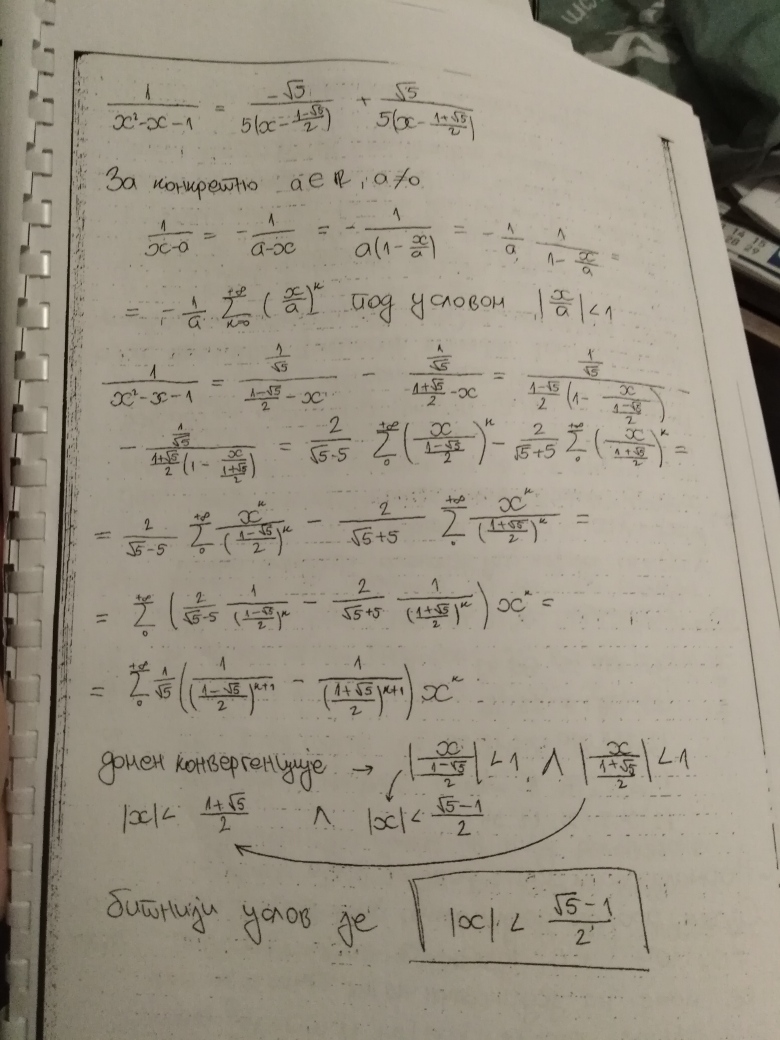 1/(x²-x-1) = -√5/(5(x-(1-√5)/2)) + √5/(5(x-(1+√5)/2))
За конкретно a∈ℝ, a≠0
1/(x-a) = -1/(a-x) = -1/(a(1-x/a)) = -1/a · 1/(1-x/a) =
= -1/a ∑_{k=0}^{+∞} (x/a)^k под условом |x/a|<1
1/(x²-x-1) = (1/√5)/((1-√5)/2 - x) - (1/√5)/((1+√5)/2 - x) = (1/√5)/((1-√5)/2 (1 - x/((1-√5)/2))) -
- (1/√5)/((1+√5)/2 (1 - x/((1+√5)/2))) = 2/(√5-5) ∑_0^{+∞} (x/((1-√5)/2))^k - 2/(√5+5) ∑_0^{+∞} (x/((1+√5)/2))^k =
= 2/(√5-5) ∑_0^{+∞} x^k/((1-√5)/2)^k - 2/(√5+5) ∑_0^{+∞} x^k/((1+√5)/2)^k =
= ∑_0^{+∞} (2/(√5-5) 1/((1-√5)/2)^k - 2/(√5+5) 1/((1+√5)/2)^k) x^k =
= ∑_0^{+∞} 1/√5 (1/((1-√5)/2)^{k+1} - 1/((1+√5)/2)^{k+1}) x^k
домен конвергенције → |x/((1-√5)/2)| < 1 ∧ |x/((1+√5)/2)| < 1
|x| < (1+√5)/2 ∧ |x| < (√5-1)/2
битнији услов је |x| < (√5-1)/2
14 15
28 29